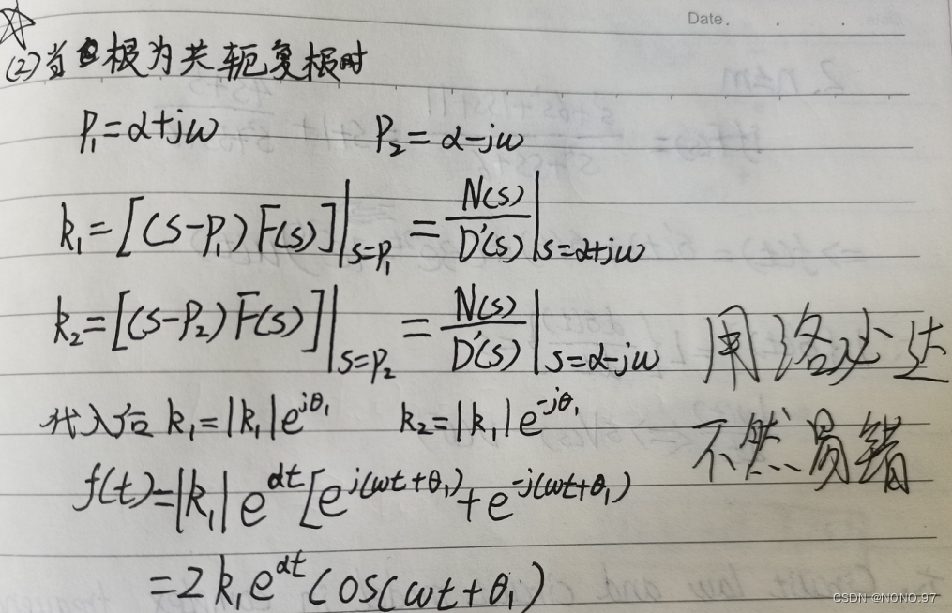 Date.
(2)当根为共轭复根时
P₁=α+jω P₂=α-jω
k₁=[(s-P₁)F(s)]|s=P₁ = N(s)/D'(s)|s=α+jω
k₂=[(s-P₂)F(s)]|s=P₂ = N(s)/D'(s)|s=α-jω 用洛必达
代入后 k₁=|k₁|e^{jθ₁} k₂=|k₁|e^{-jθ₁} 不然易错
f(t)=|k₁|e^{αt}[e^{j(ωt+θ₁)}+e^{-j(ωt+θ₁)}]
=2k₁e^{αt}cos(ωt+θ₁)
CSDN @NONO.97